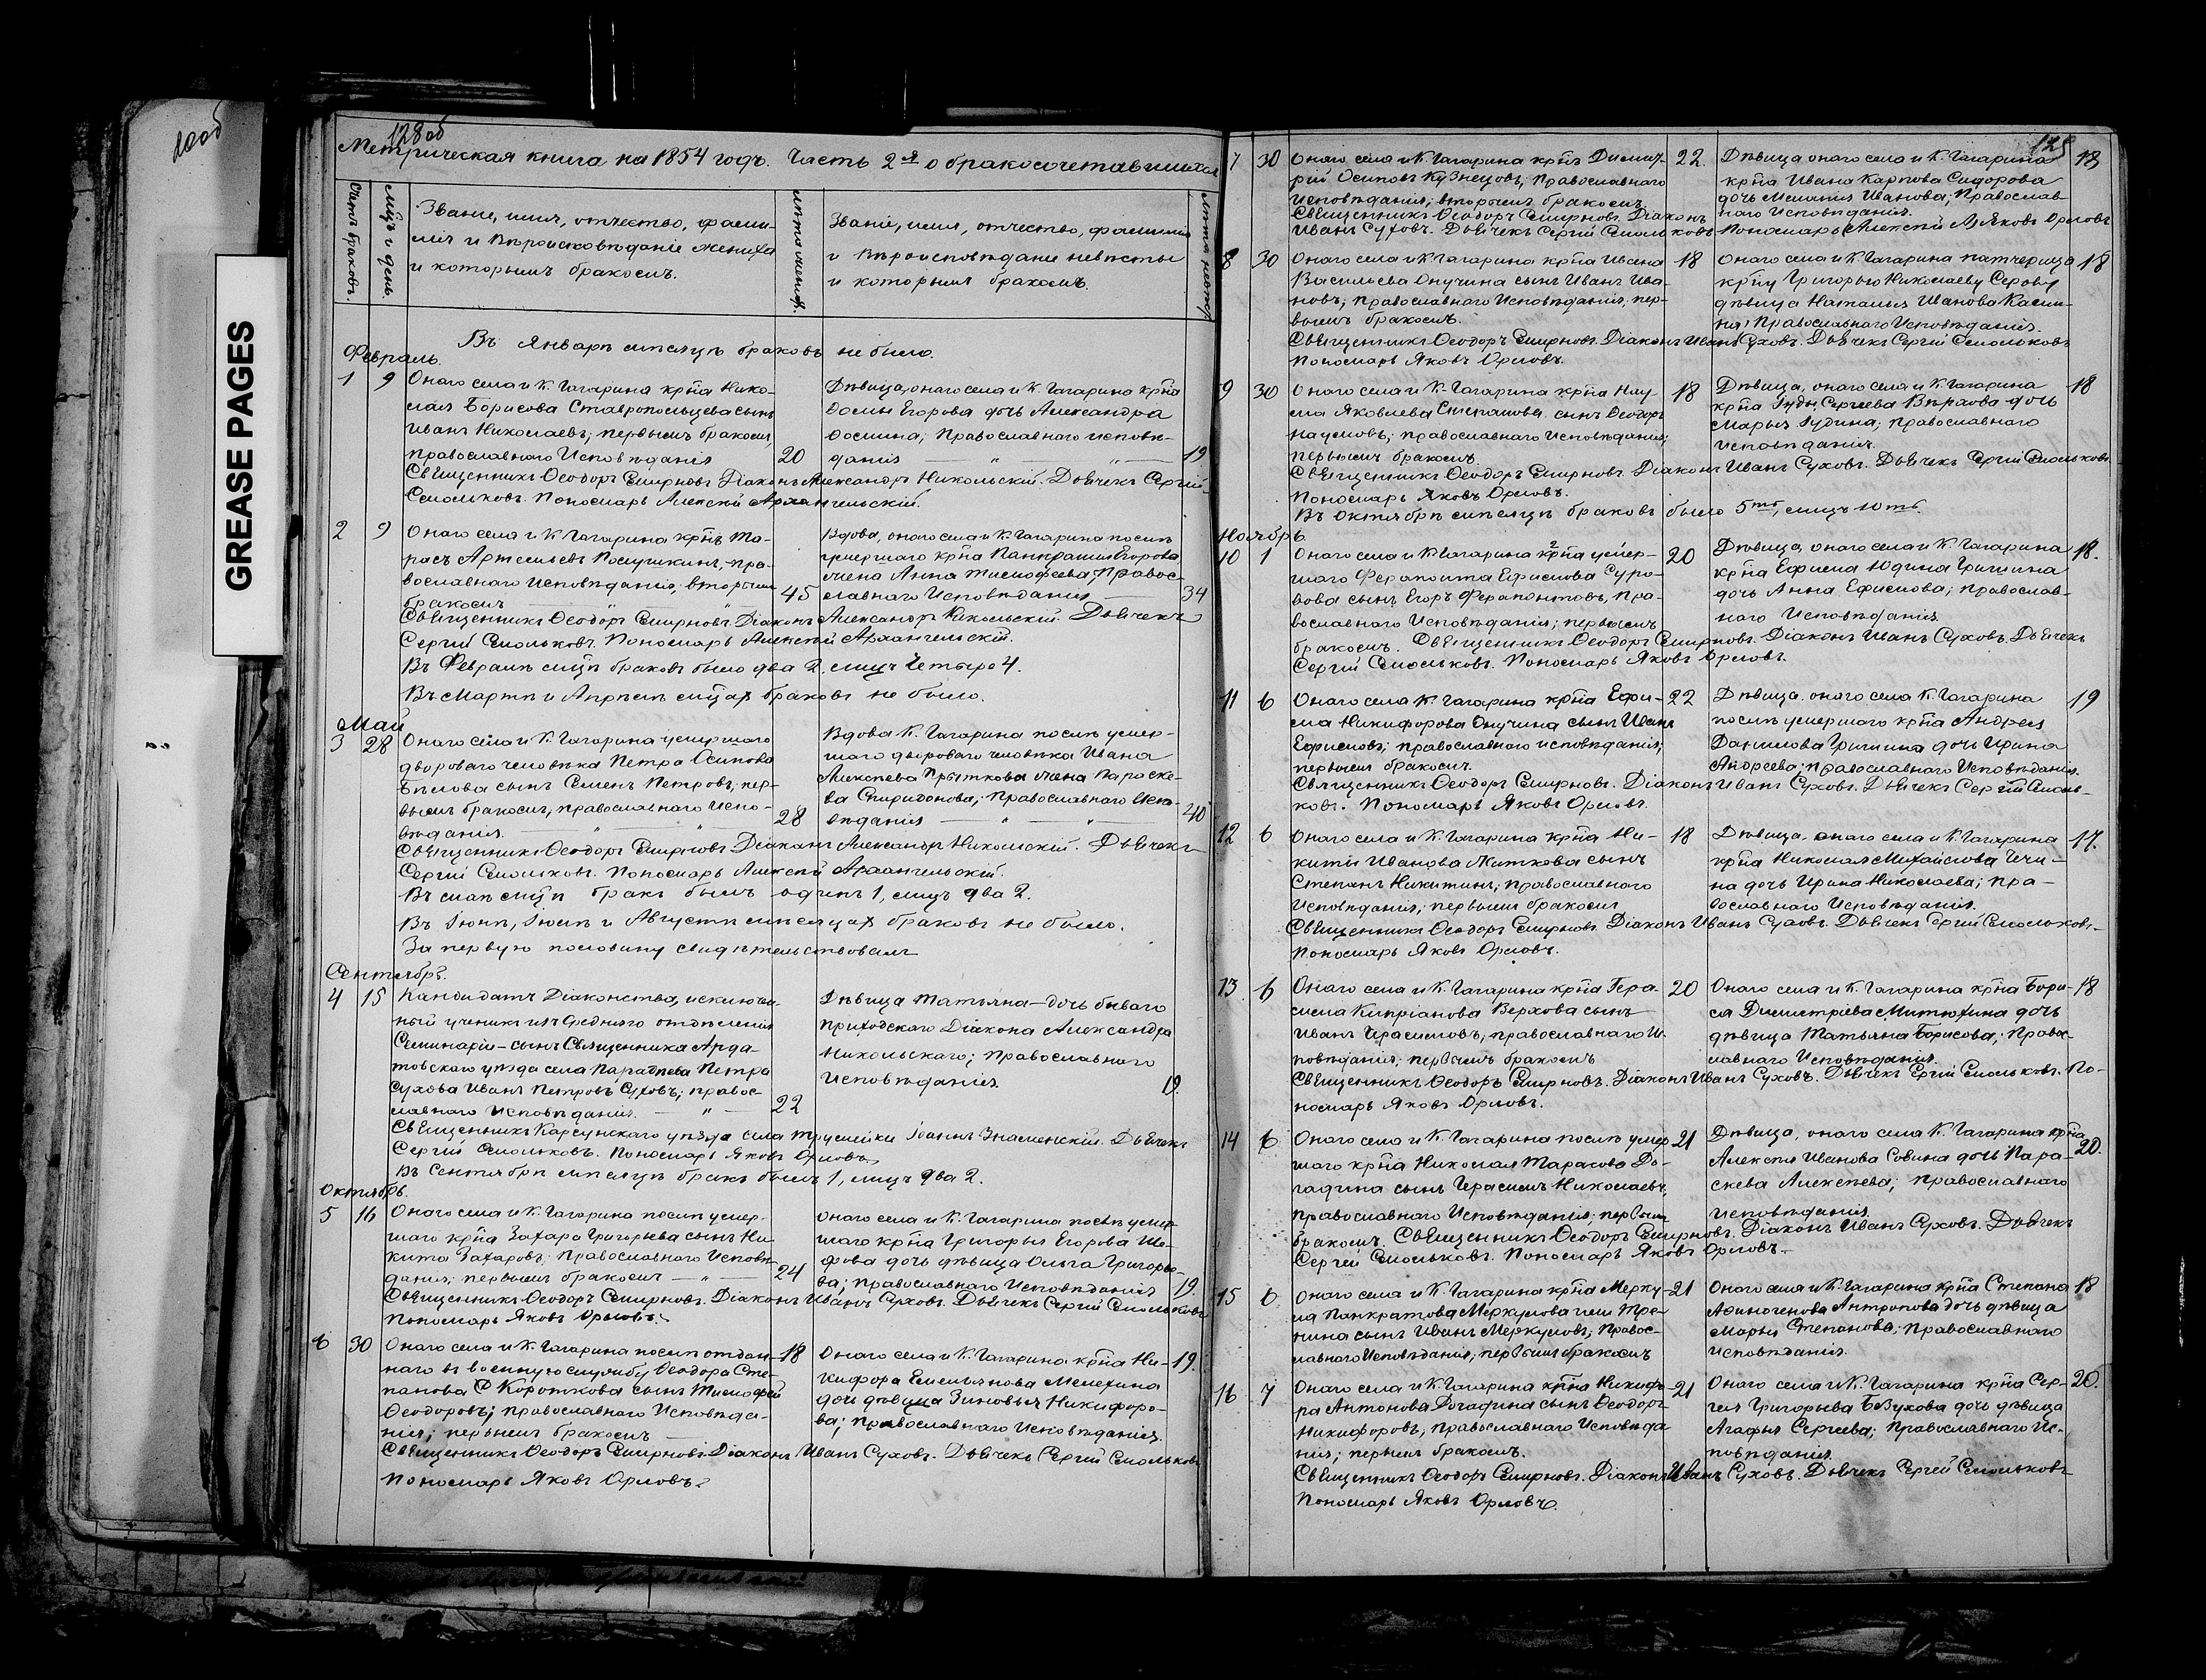 100об
GREASE PAGES
128об
Метрическая книга на 1854 годъ. Часть 2я о бракосочетавшихся
Счетъ браковъ.
Мцъ и день.
Званіе, имя, отчество, фами-
лія и Вѣроисповѣданіе жениха
и которымъ бракомъ.
лѣта жениха.
Званіе, имя, отчество, фамилія
и Вѣроисповѣданіе невѣсты
и которымъ бракомъ.
лѣта невѣсты
Въ Январѣ мѣсяцѣ браковъ не было.
Февраль.
1 9 Онаго села и К. Гагарина крѣна Нико-
лая Борисова Ставропольцева сынъ
Иванъ Николаевъ; первымъ бракомъ,
православнаго Исповѣданія 20
Дѣвица, онаго села и К. Гагарина крѣна
Фомы Егорова дочь Александра
Фомина; Православнаго исповѣ-
данія 19
Священникъ Ѳеодоръ Смирновъ. Діаконъ Александръ Никольскій. Дьячекъ Сергій
Смольковъ. Пономарь Алексѣй Архангельскій.
2 9 Онаго села и К. Гагарина крѣнъ Та-
расъ Артемьевъ Полушкинъ, пра-
вославнаго Исповѣданія, вторымъ
бракомъ 45
Вдова, онаго села и К. Гагарина послѣ
умершаго крѣна Панкратія Егорова
жена Анна Тимофеева; Правос-
лавнаго Исповѣданія 34
Священникъ Ѳеодоръ Смирновъ. Діаконъ Александръ Никольскій. Дьячекъ
Сергій Смольковъ. Пономарь Алексѣй Архангельскій.
Въ Февралѣ мцѣ браковъ было два 2, лицъ четыре 4.
Въ Мартѣ и Апрѣлѣ мцахъ браковъ не было.
Май
3 28 Онаго села и К. Гагарина умершаго
двороваго человѣка Петра Осипова
Бѣлова сынъ Семенъ Петровъ; пер-
вымъ бракомъ, православнаго Испо-
вѣданія. 28
Вдова К. Гагарина послѣ умер-
шаго двороваго человѣка Ивана
Алексѣева Прыткова жена Параске-
ва Спиридонова; Православнаго Испо-
вѣданія 40
Священникъ Ѳеодоръ Смирновъ Діаконъ Александръ Никольскій. Дьячекъ
Сергій Смольковъ. Пономарь Алексѣй Архангельскій.
Въ маѣ мцѣ бракъ былъ одинъ 1, лицъ два 2.
Въ Іюнѣ, Іюлѣ и Августѣ мѣсяцахъ браковъ не было.
За первую половину свидѣтельствовалъ
Сентябрь.
4 15 Кандидатъ Діаконства, исключен-
ный ученикъ изъ Средняго отдѣленія
Семинаріи - сынъ Священника Арда-
товскаго уѣзда села Паратѣева Петра
Сухова Иванъ Петровъ Суховъ; правос-
лавнаго Исповѣданія. 22
Дѣвица Татьяна - дочь бывшаго
Приходскаго Діакона Александра
Никольскаго; Православнаго
Исповѣданія. 19.
Священникъ Карсунскаго уѣзда села Труслейки Іоаннъ Знаменскій. Дьячекъ
Сергій Смольковъ. Пономарь Яковъ Орловъ.
Въ Сентябрѣ мѣсяцѣ бракъ былъ 1, лицъ два 2.
Октябрь.
5 16 Онаго села и К. Гагарина послѣ умер-
шаго крѣна Захара Григорьева сынъ Ни-
кита Захаровъ; Православнаго Исповѣ-
данія; первымъ бракомъ 24
Онаго села и К. Гагарина послѣ умер-
шаго крѣна Григорья Егорова Ше-
фова дочь дѣвица Ольга Григорье-
ва; Православнаго Исповѣданія 19.
Священникъ Ѳеодоръ Смирновъ. Діаконъ Иванъ Суховъ. Дьячекъ Сергій Смольковъ
Пономарь Яковъ Орловъ.
6 30 Онаго села и К. Гагарина послѣ отдан-
наго въ военную службу Ѳеодора Сте-
панова Короткова сынъ Тимофей
Ѳеодоровъ; православнаго Исповѣда-
нія; первымъ бракомъ 18
Онаго села и К. Гагарина крѣна Ни-
кифора Емельянова Мелехина
дочь дѣвица Зиновья Никифоро-
ва; Православнаго Исповѣданія. 19.
Священникъ Ѳеодоръ Смирновъ. Діаконъ Иванъ Суховъ. Дьячекъ Сергій Смольковъ
Пономарь Яковъ Орловъ.
129
7 30 Онаго села и К. Гагарина крѣнъ Димит-
рій Осиповъ Кузнецовъ; Православнаго
исповѣданія; вторымъ бракомъ. 22.
Дѣвица онаго села и К. Гагарина
крѣна Ивана Карпова Сидорова
дочь Меланія Иванова; Православ-
наго Исповѣданія. 18
Священникъ Ѳеодоръ Смирновъ. Діаконъ
Иванъ Суховъ. Дьячекъ Сергій Смольковъ Пономарь Яковъ Орловъ
8 30 Онаго села и К. Гагарина крѣна Ивана
Васильева Онучина сынъ Иванъ Ива-
новъ; православнаго Исповѣданія, пер-
вымъ бракомъ. 18
Онаго села и К. Гагарина патчерица
крѣну Григорью Николаеву Серову
дѣвица Наталья Иванова Касьи-
на; Православнаго Исповѣданія. 18
Священникъ Ѳеодоръ Смирновъ. Діаконъ Иванъ Суховъ. Дьячекъ Сергій Смольковъ
Пономарь Яковъ Орловъ.
9 30 Онаго села и К. Гагарина крѣна Нау-
ма Яковлева Степанова сынъ Ѳеодоръ
Наумовъ; православнаго Исповѣданія;
первымъ бракомъ 18
Дѣвица, онаго села и К. Гагарина
крѣна Іуды Сергеева дочь
Марья Іудина; православнаго
исповѣданія. 18
Священникъ Ѳеодоръ Смирновъ Діаконъ Иванъ Суховъ. Дьячекъ Сергій Смольковъ
Пономарь Яковъ Орловъ.
Въ Октябрѣ мѣсяцѣ браковъ было 5ть, лицъ 10ть.
Ноябрь
10 1 Онаго села и К. Гагарина крѣна умер-
шаго Ферапонта Ефимова Суро-
вова сынъ Егоръ Ферапонтовъ, Пра-
вославнаго Исповѣданія; первымъ
бракомъ. 20
Дѣвица онаго села и К. Гагарина
крѣна Ефима Юдина Гришина
дочь Анна Ефимова; православ-
наго Исповѣданія. 18.
Священникъ Ѳеодоръ Смирновъ. Діаконъ Иванъ Суховъ. Дьячекъ
Сергій Смольковъ. Пономарь Яковъ Орловъ.
11 6 Онаго села К. Гагарина крѣна Ефи-
ма Никифорова Онучина сынъ Иванъ
Ефимовъ; православнаго исповѣданія;
первымъ бракомъ. 22
Дѣвица онаго села К. Гагарина
послѣ умершаго крѣна Андрея
Данилова Гришина дочь Ирина
Андреева; православнаго Исповѣданія. 19
Священникъ Ѳеодоръ Смирновъ. Діаконъ Иванъ Суховъ. Дьячекъ Сергій Смоль-
ковъ. Пономарь Яковъ Орловъ.
12 6 Онаго села и К. Гагарина крѣна Ни-
киты Иванова Житкова сынъ
Степанъ Никитинъ; Православнаго
Исповѣданія; первымъ бракомъ 18
Дѣвица онаго села и К. Гагарина
крѣна Николая Михайлова Чечи-
на дочь Ирина Николаева; Пра-
вославнаго Исповѣданія. 17.
Священникъ Ѳеодоръ Смирновъ. Діаконъ Иванъ Суховъ. Дьячекъ Сергій Смольковъ.
Пономарь Яковъ Орловъ.
13 6 Онаго села и К. Гагарина крѣна Гера-
сима Кипріанова Верхова сынъ
Иванъ Герасимовъ, православнаго Ис-
повѣданія; первымъ бракомъ 20
Онаго села и К. Гагарина крѣна Бори-
са Димитріева Митюхина дочь
дѣвица Татьяна Борисова; Правос-
лавнаго Исповѣданія. 18
Священникъ Ѳеодоръ Смирновъ. Діаконъ Иванъ Суховъ. Дьячекъ Сергій Смольковъ. По-
номарь Яковъ Орловъ.
14 6 Онаго села и К. Гагарина послѣ умер-
шаго крѣна Николая Тарасова До-
гадина сынъ Герасимъ Николаевъ,
православнаго Исповѣданія; первымъ
бракомъ. 21
Дѣвица, онаго села К. Гагарина крѣна
Алексѣя Иванова Совина дочь Пара-
скева Алексѣева; Православнаго
исповѣданія. 20.
Священникъ Ѳеодоръ Смирновъ. Діаконъ Иванъ Суховъ. Дьячекъ
Сергій Смольковъ. Пономарь Яковъ Орловъ.
15 6 Онаго села и К. Гагарина крѣна Мерку-
ла Панкратова Меркулова или Тре-
нина сынъ Иванъ Меркуловъ; Правос-
лавнаго Исповѣданія; первымъ бракомъ 21
Онаго села и К. Гагарина крѣна Степана
Афиногенова Антропова дочь дѣвица
Марья Степанова; Православнаго
исповѣданія. 18
16 7 Онаго села и К. Гагарина крѣна Никифо-
ра Антонова Догадина сынъ Ѳеодоръ
Никифоровъ; православнаго Исповѣда-
нія; первымъ бракомъ. 21
Онаго села и К. Гагарина крѣна Сер-
гея Григорьева Безухова дочь дѣвица
Агафья Сергеева; Православнаго Ис-
повѣданія. 20.
Священникъ Ѳеодоръ Смирновъ. Діаконъ Иванъ Суховъ. Дьячекъ Сергей Смольковъ
Пономарь Яковъ Орловъ.